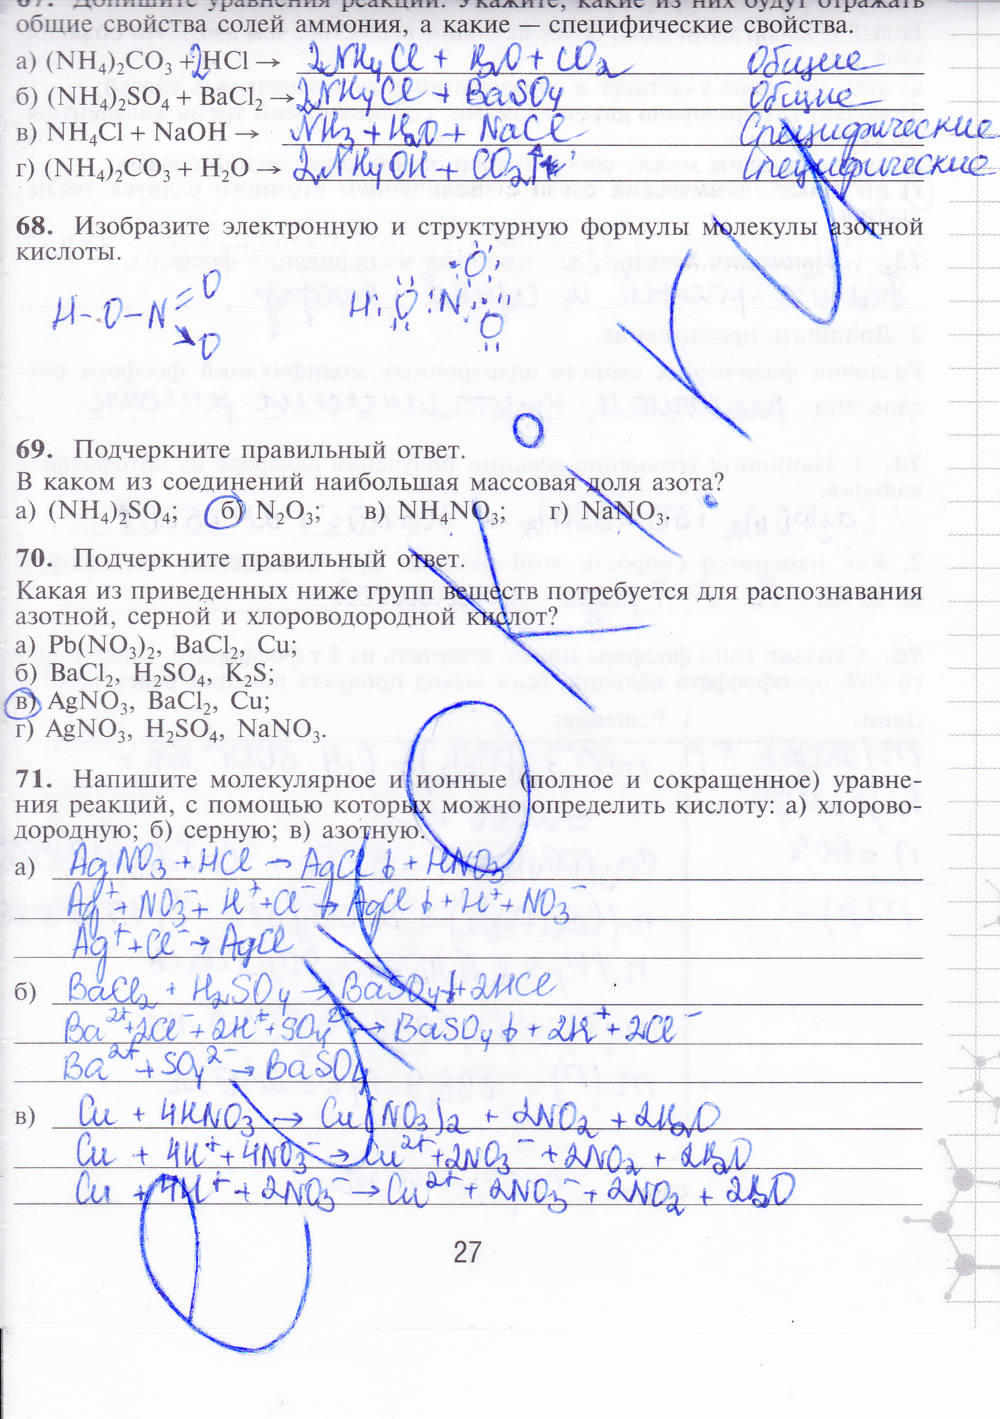 67. Допишите уравнения реакций. Укажите, какие из них будут отражать
общие свойства солей аммония, а какие — специфические свойства.
а) (NH4)2CO3 + 2HCl → 2NH4Cl + H2O + CO2 Общие
б) (NH4)2SO4 + BaCl2 → 2NH4Cl + BaSO4 Общие
в) NH4Cl + NaOH → NH3 + H2O + NaCl Специфические
г) (NH4)2CO3 + H2O → 2NH4OH + CO2↑ Специфические
68. Изобразите электронную и структурную формулы молекулы азотной
кислоты.
H-O-N=O →O H:O:N::O:O
69. Подчеркните правильный ответ.
В каком из соединений наибольшая массовая доля азота?
а) (NH4)2SO4; б) N2O3; в) NH4NO3; г) NaNO3.
70. Подчеркните правильный ответ.
Какая из приведенных ниже групп веществ потребуется для распознавания
азотной, серной и хлороводородной кислот?
а) Pb(NO3)2, BaCl2, Cu;
б) BaCl2, H2SO4, K2S;
в) AgNO3, BaCl2, Cu;
г) AgNO3, H2SO4, NaNO3.
71. Напишите молекулярное и ионные (полное и сокращенное) уравне-
ния реакций, с помощью которых можно определить кислоту: а) хлорово-
дородную; б) серную; в) азотную.
а) AgNO3 + HCl → AgCl↓ + HNO3
Ag+ + NO3- + H+ + Cl- → AgCl↓ + H+ + NO3-
Ag+ + Cl- → AgCl
б) BaCl2 + H2SO4 → BaSO4↓ + 2HCl
Ba2+ + 2Cl- + 2H+ + SO42- → BaSO4↓ + 2H+ + 2Cl-
Ba2+ + SO42- → BaSO4
в) Cu + 4HNO3 → Cu(NO3)2 + 2NO2 + 2H2O
Cu + 4H+ + 4NO3- → Cu2+ + 2NO3- + 2NO2 + 2H2O
Cu + 4H+ + 2NO3- → Cu2+ + 2NO3- + 2NO2 + 2H2O
27